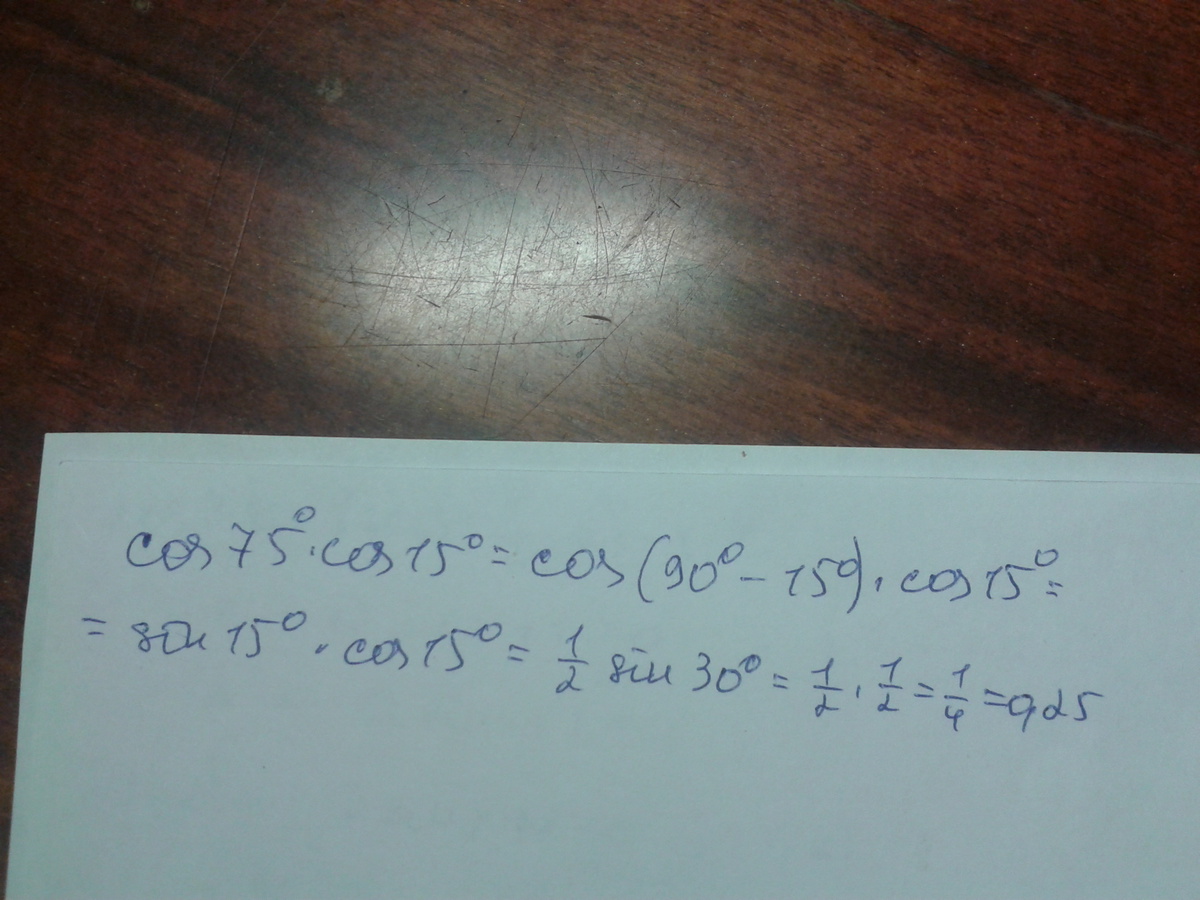 cos 75° · cos 15° = cos (90° - 15°) · cos 15° =
= sin 15° · cos 15° = 1/2 sin 30° = 1/2 · 1/2 = 1/4 = 0,25